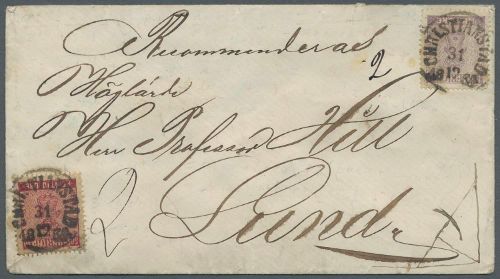 Recommenderas
2
Höglärde
Herr Professor Hill
2 Lund
CHRISTIANSTAD
31
12
CHRISTIANSTAD
31
12